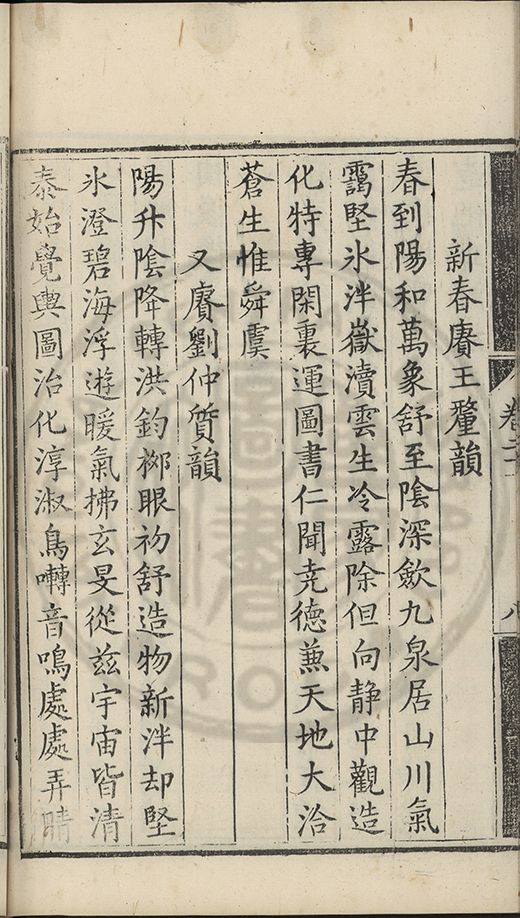 新春賡王釐韻
春到陽和萬象舒至陰深歛九泉居山川氣
靄堅氷泮嶽瀆雲生冷露除但向静中觀造
化特專閑裏運圖書仁聞尭徳蒹天地大洽
蒼生惟舜虞
又賡劉仲質韻
陽升隂降轉洪鈞栁眼初舒造物新泮却堅
氷澄碧海浮遊暖氣拂玄旻從兹宇宙皆清
泰始覺輿圖治化淳淑鳥囀音鳴處處弄晴
卷二十
八